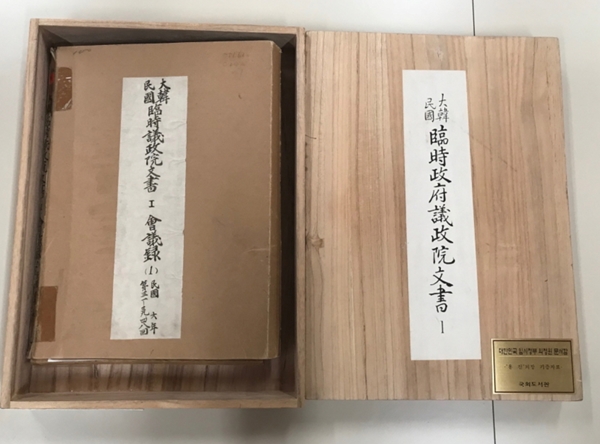 大韓
民國
臨時議政院文書 I 會議錄 (1)
民國 六年
大韓
民國
臨時政府議政院文書 I
대한민국 임시정부 의정원 문서함
국회도서관